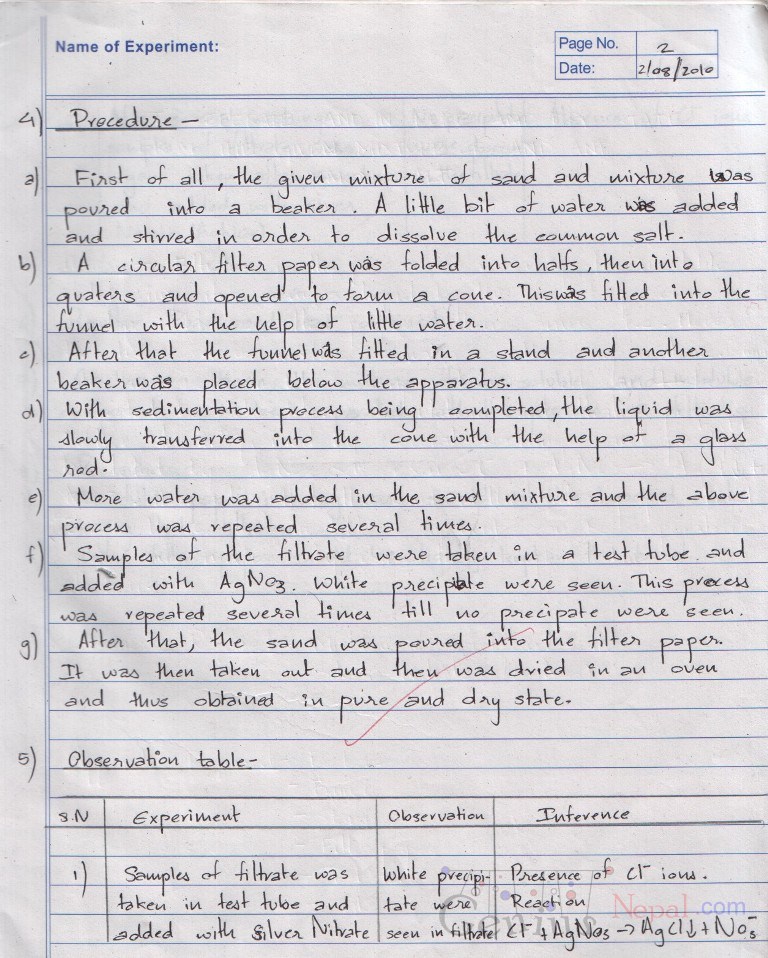 Name of Experiment:
Page No. 2
Date: 2/08/2010
4) Procedure -
a) First of all, the given mixture of sand and mixture was
poured into a beaker. A little bit of water was added
and stirred in order to dissolve the common salt.
b) A circular filter paper was folded into halfs, then into
quaters and opened to form a cone. This was fitted into the
funnel with the help of little water.
c) After that the funnel was fitted in a stand and another
beaker was placed below the apparatus.
d) With sedimentation process being completed, the liquid was
slowly transferred into the cone with the help of a glass
rod.
e) More water was added in the sand mixture and the above
process was repeated several times.
f) Samples of the filtrate were taken in a test tube and
added with AgNO3. White precipitate were seen. This process
was repeated several times till no precipate were seen.
g) After that, the sand was poured into the filter paper.
It was then taken out and then was dried in an oven
and thus obtained in pure and dry state.
5) Observation table-
S.N Experiment Observation Inference
1) Samples of filtrate was White precipi- Presence of Cl- ions.
taken in test tube and tate were Reaction
added with Silver Nitrate seen in filtrate Cl- + AgNO3 → AgCl↓ + NO3-
Genius Nepal.com